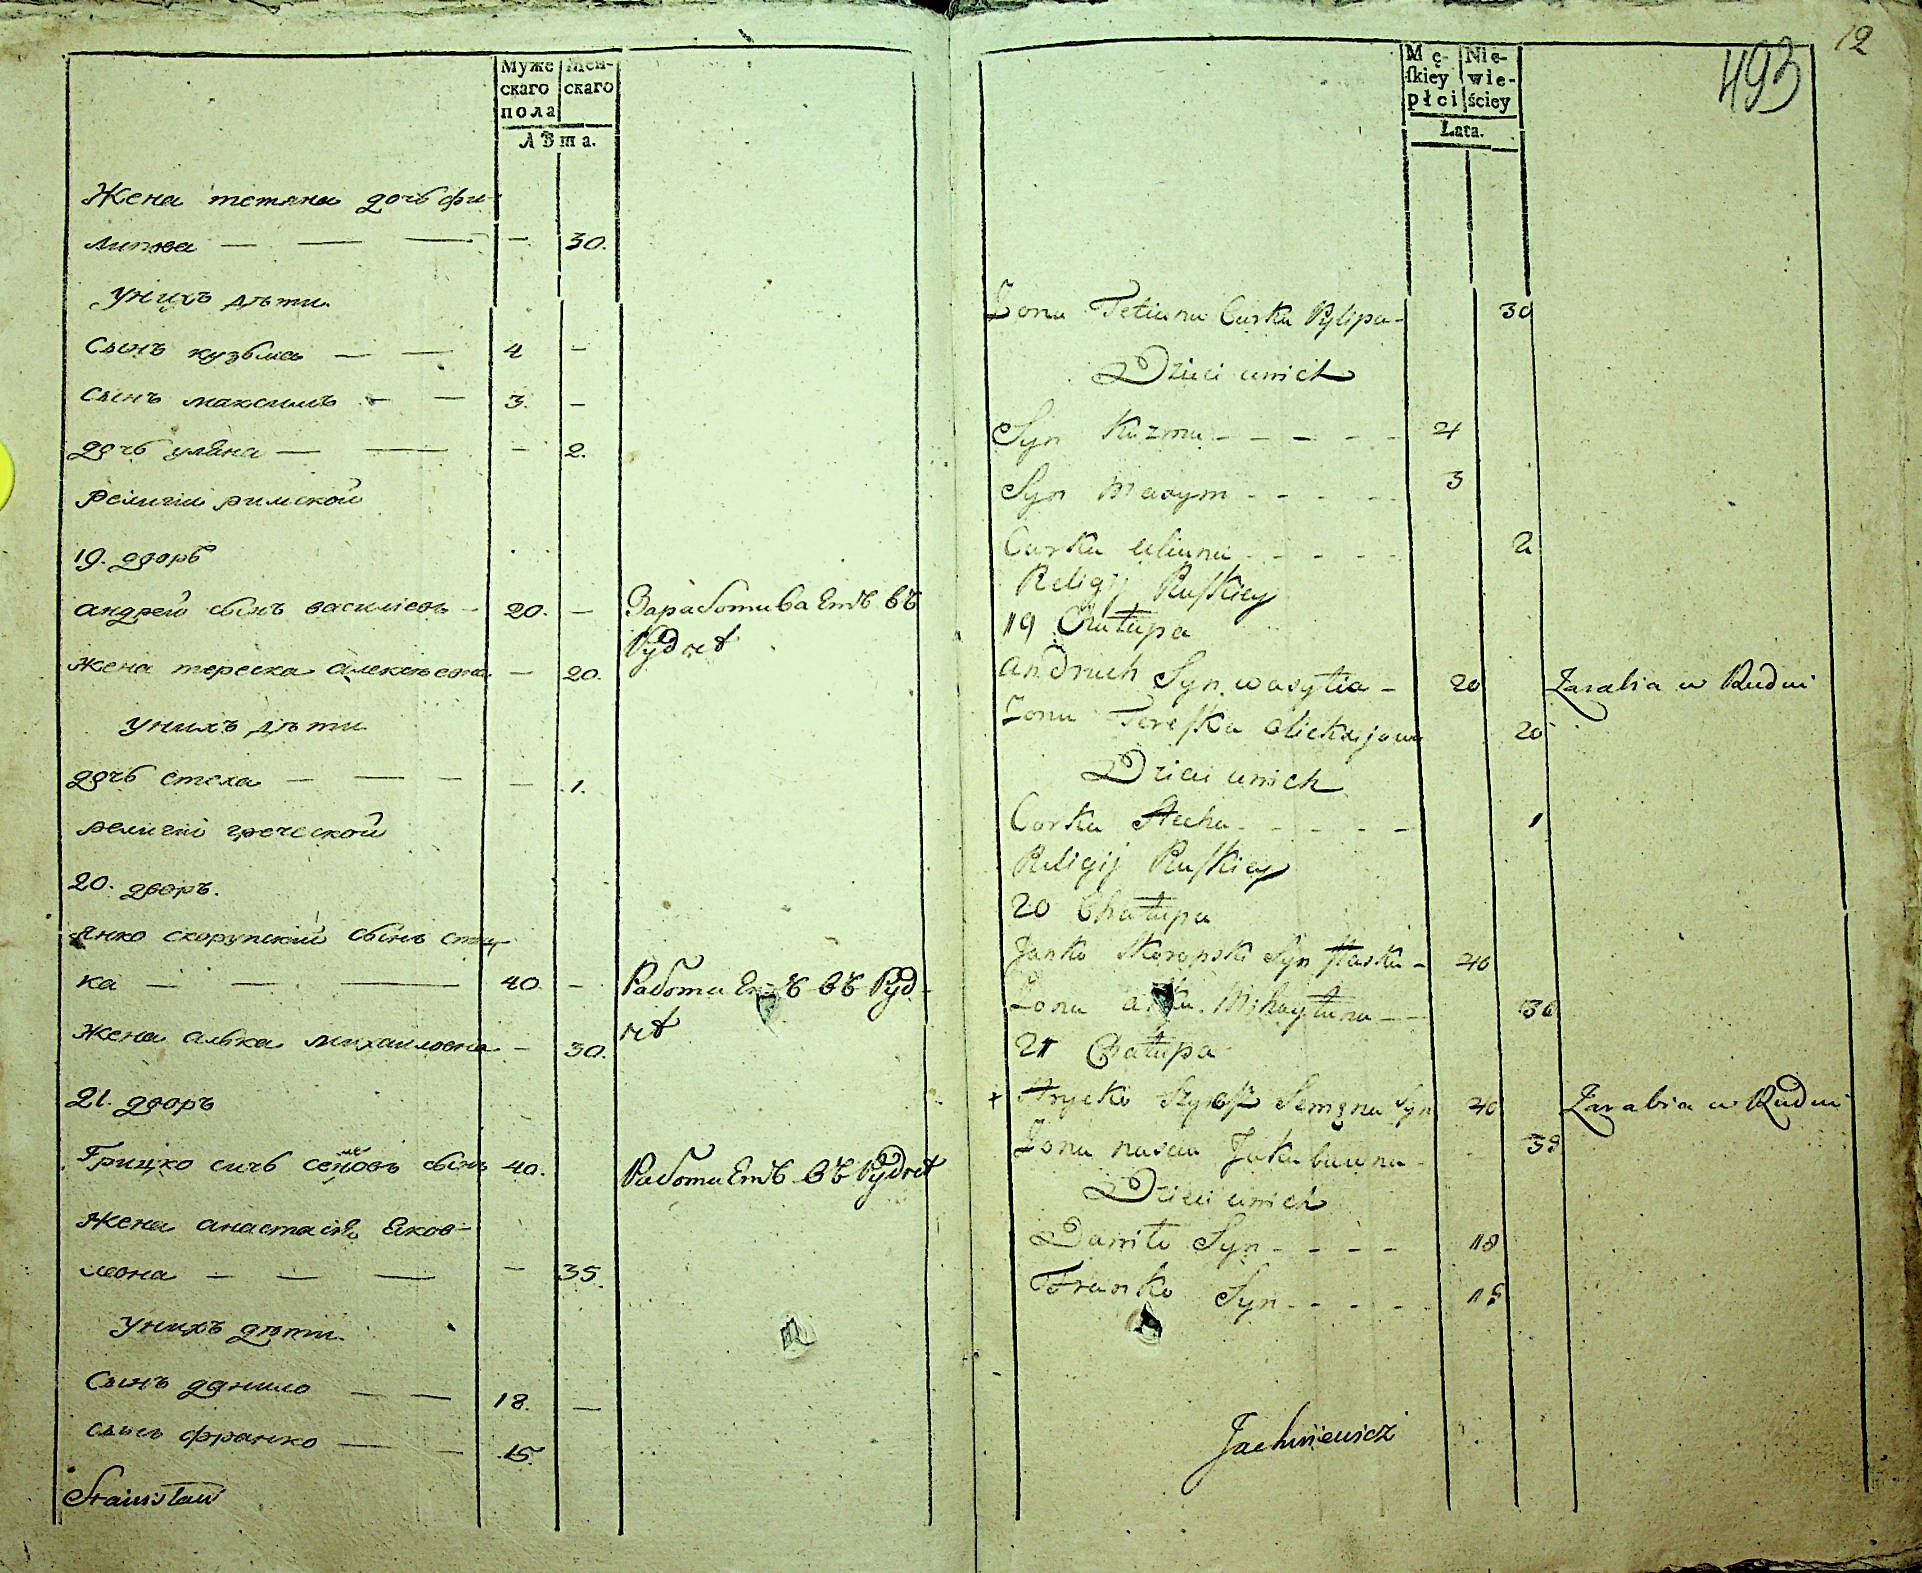 Муже
скаго
пола
Жен-
скаго
Лѣта.
Жена тетяна дочь фи-
липова — — — — 30.
Унихъ дѣти.
Сынъ кузьма — — 4 —
Сынъ максимъ — — 3. —
дочь уляна — — — 2.
религіи римской
19. дворъ
андрей сынъ василіевъ — 20. — Заработиваетъ въ
Руднѣ
жена тереска алексѣевна — 20.
унихъ дѣти
дочь стеха — — — — 1.
религіи греческой
20. дворъ.
янко скорупскій сынъ стас
ка — — — 40. — Работаетъ въ Руд-
нѣ
жена алька михаиловна — 30.
21. дворъ
Грицко сичъ сеновъ сынъ 40. Работаетъ въ Руднѣ
ме
Жена анастасія Яков-
левна — — — — 35.
Унихъ дѣти.
Сынъ данило — — 18. —
сынъ франко — — 15.
Stanisław
12
493
Mę-
ſkiey
płci
Nie-
wie-
ściey
Lata.
Żona Tetiana Curka Pylipa- 30
Dzieci unich
Syn Kuzma - - - - - 4
Syn Maxym - - - - 3
Curka Uliana - - - - - 2
Religij Ruſkiey
19 Chałupa
andruch Syn wasyla - 20 Zarabia w Rudni
Zona Tereſka Oliekſijowna 20
Dzieci unich
Corka Stecha - - - - - 1
Religij Ruſkiey
20 Chałupa
Janko Skoropski Syn Staska - 40
Zona Mihayłuna - - 30
21 Chałupa
+ Hrycko Semena Syn 40 Zarabia w Rudni
Zona nascia Jakubauna - - 35
Dzieci unich
Daniło Syn - - - - 18
Franko Syn - - - - 15
Jachniewicz